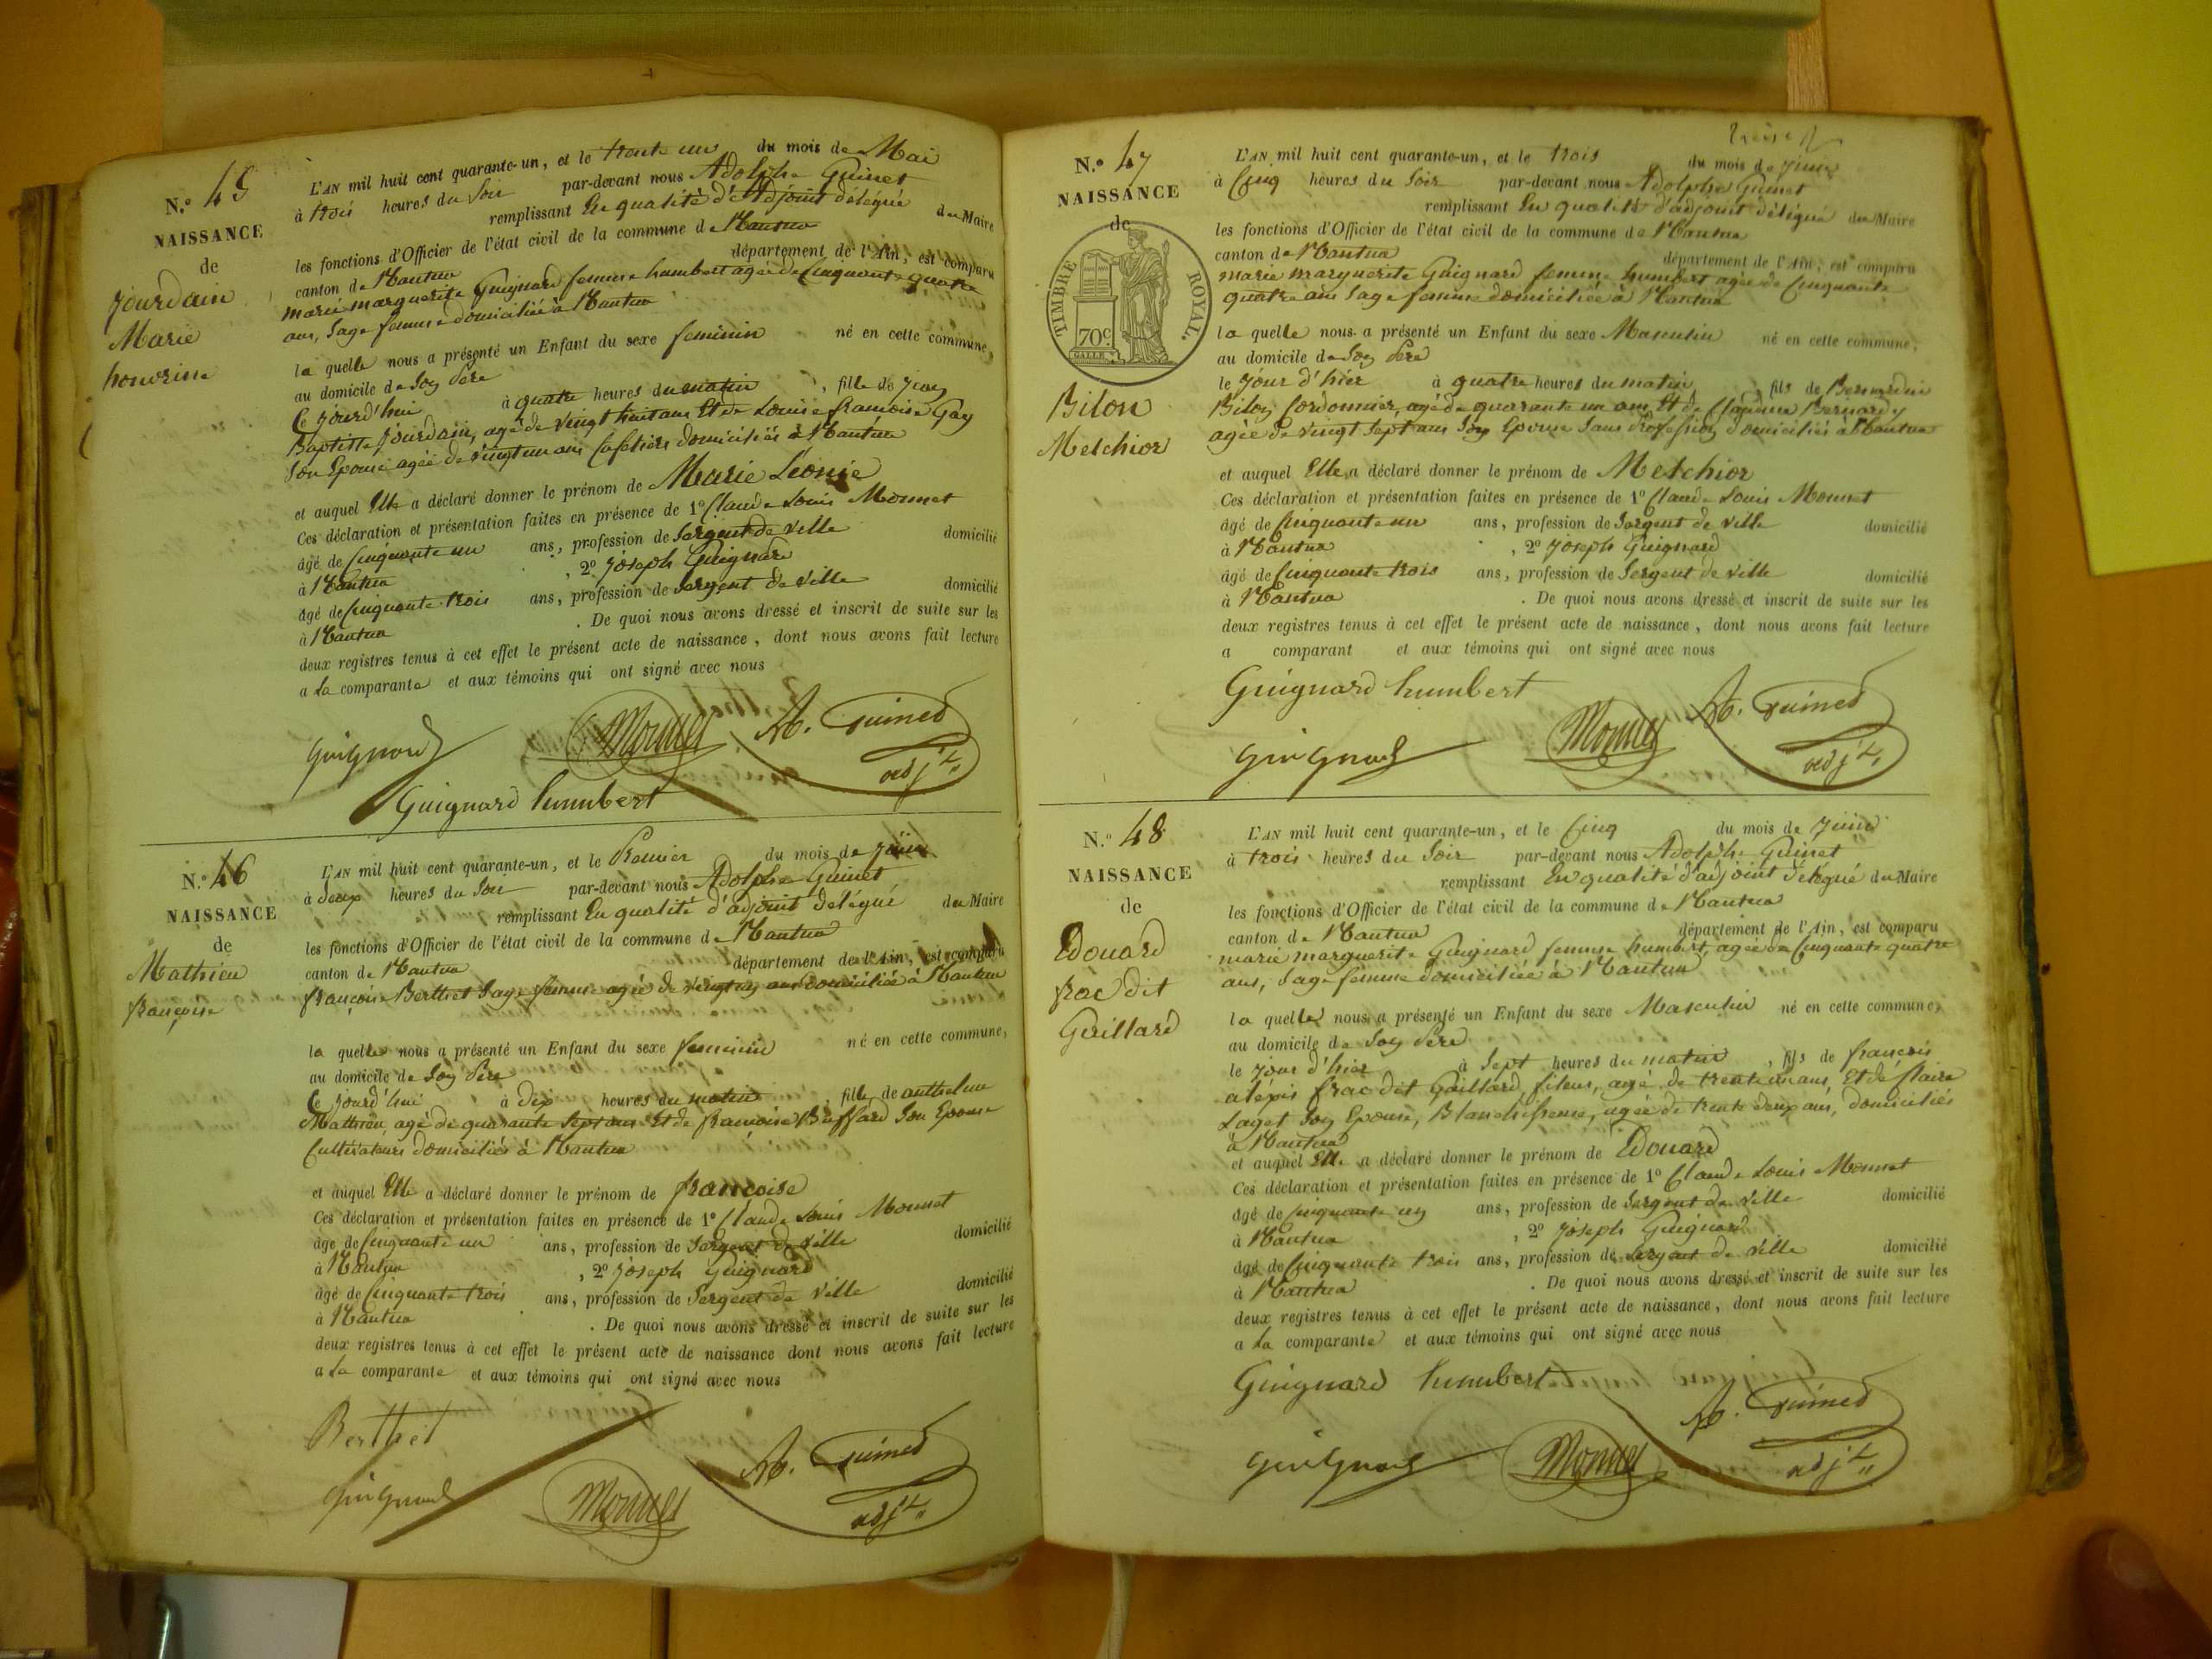 N.º 45
NAISSANCE
de
Jourdain
Marie
L'AN mil huit cent quarante-un, et le trente un du mois de Mai
à trois heures du Soir par-devant nous Adolphe Guinet
remplissant En qualité d'Adjoint délégué du Maire
les fonctions d'Officier de l'état civil de la commune de Nantua
canton de Nantua département de l'Ain, est comparu
marie marguerite Guignard femme humbert agée de Cinquante quatre
ans, Sage femme domiciliée à Nantua
la quelle nous a présenté un Enfant du sexe feminin né en cette commune,
au domicile de Son Père
Ce jourd'hui à quatre heures du matin, fille de Jean
Baptiste Jourdain, agé de vingt huit ans Et de Louise françoise Gay
Son Epouse agée de vingt un ans Cafetiers domiciliés à Nantua
et auquel Elle a déclaré donner le prénom de Marie Léonie
Ces déclaration et présentation faites en présence de 1º Claude Louis Monnet
âgé de Cinquante un ans, profession de Sergent de Ville domicilié
à Nantua, 2º Joseph Guignard
âgé de Cinquante trois ans, profession de Sergent de Ville domicilié
à Nantua. De quoi nous avons dressé et inscrit de suite sur les
deux registres tenus à cet effet le présent acte de naissance, dont nous avons fait lecture
a La comparante et aux témoins qui ont signé avec nous
Guignard Monnet A. Guinet
adjt
Guignard humbert
N.º 46
NAISSANCE
de
Mathieu
françoise
L'AN mil huit cent quarante-un, et le Premier du mois de Juin
à deux heures du Soir par-devant nous Adolphe Guinet
remplissant En qualité d'adjoint délégué du Maire
les fonctions d'Officier de l'état civil de la commune de Nantua
canton de Nantua département de l'Ain, est comparu
françoise Berthet Sage femme agée de ans domiciliée à Nantua
la quelle nous a présenté un Enfant du sexe feminin né en cette commune,
au domicile de Son Père
Ce jourd'hui à Dix heures du matin, fille de anthelme
Mathieu, agé de quarante Sept ans Et de françoise Buffard Son Epouse
Cultivateurs domiciliés à Nantua
et auquel Elle a déclaré donner le prénom de françoise
Ces déclaration et présentation faites en présence de 1º Claude Louis Monnet
âgé de Cinquante un ans, profession de Sergent de Ville domicilié
à Nantua, 2º Joseph Guignard
âgé de Cinquante trois ans, profession de Sergent de Ville domicilié
à Nantua. De quoi nous avons dressé et inscrit de suite sur les
deux registres tenus à cet effet le présent acte de naissance dont nous avons fait lecture
a La comparante et aux témoins qui ont signé avec nous
Berthet
A. Guinet
Guignard Monnet adjt
N.º 47
NAISSANCE
de
TIMBRE ROYAL.
70 C.
Bilon
Melchior
L'AN mil huit cent quarante-un, et le trois du mois de Juin
à Cinq heures du Soir par-devant nous Adolphe Guinet
remplissant En qualité d'adjoint délégué du Maire
les fonctions d'Officier de l'état civil de la commune de Nantua
canton de Nantua département de l'Ain, est comparu
marie marguerite Guignard femme humbert agée de Cinquante
quatre ans Sage femme domiciliée à Nantua
la quelle nous a présenté un Enfant du sexe Masculin né en cette commune,
au domicile de Son Père
le jour d'hier à quatre heures du matin, fils de Bernardin
Bilon Cordonnier, agé de quarante un ans Et de Claudine Bernardy
agée de vingt Sept ans Son Epouse Sans Profession domiciliés à Nantua
et auquel Elle a déclaré donner le prénom de Melchior
Ces déclaration et présentation faites en présence de 1º Claude Louis Monnet
âgé de Cinquante un ans, profession de Sergent de Ville domicilié
à Nantua, 2º Joseph Guignard
âgé de Cinquante trois ans, profession de Sergent de Ville domicilié
à Nantua. De quoi nous avons dressé et inscrit de suite sur les
deux registres tenus à cet effet le présent acte de naissance, dont nous avons fait lecture
a comparant et aux témoins qui ont signé avec nous
Guignard humbert A. Guinet
Guignard Monnet adjt
N.º 48
NAISSANCE
de
Edouard
frac dit
Gaillard
L'AN mil huit cent quarante-un, et le Cinq du mois de Juin
à trois heures du Soir par-devant nous Adolphe Guinet
remplissant En qualité d'adjoint délégué du Maire
les fonctions d'Officier de l'état civil de la commune de Nantua
canton de Nantua département de l'Ain, est comparu
marie marguerite Guignard femme humbert, agée de Cinquante quatre
ans, Sage femme domiciliée à Nantua
la quelle nous a présenté un Enfant du sexe Masculin né en cette commune,
au domicile de Son Père
le jour d'hier à Sept heures du matin, fils de françois
alépis frac dit Gaillard, fileur, agé de trente un ans, Et de Claire
Laget Son Epouse, Blanchisseuse, agée de trente deux ans, domiciliés
à Nantua
et auquel Elle a déclaré donner le prénom de Edouard
Ces déclaration et présentation faites en présence de 1º Claude Louis Monnet
âgé de Cinquante un ans, profession de Sergent de Ville domicilié
à Nantua, 2º Joseph Guignard
âgé de Cinquante trois ans, profession de Sergent de Ville domicilié
à Nantua. De quoi nous avons dressé et inscrit de suite sur les
deux registres tenus à cet effet le présent acte de naissance, dont nous avons fait lecture
a La comparante et aux témoins qui ont signé avec nous
Guignard humbert A. Guinet
Guignard Monnet adjt